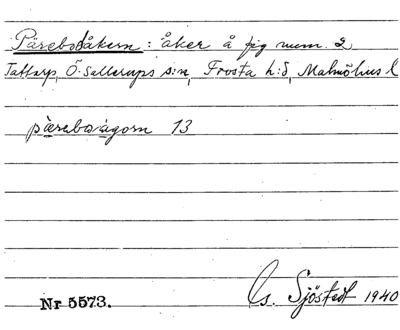 Pärebosåkern: åker å fig num. 2,
Tattarp, Ö. Sallerups s:n, Frosta h:d, Malmöhus l
pæreboságorn 13
Nr 5573.
Gs. Sjöstedt 1940